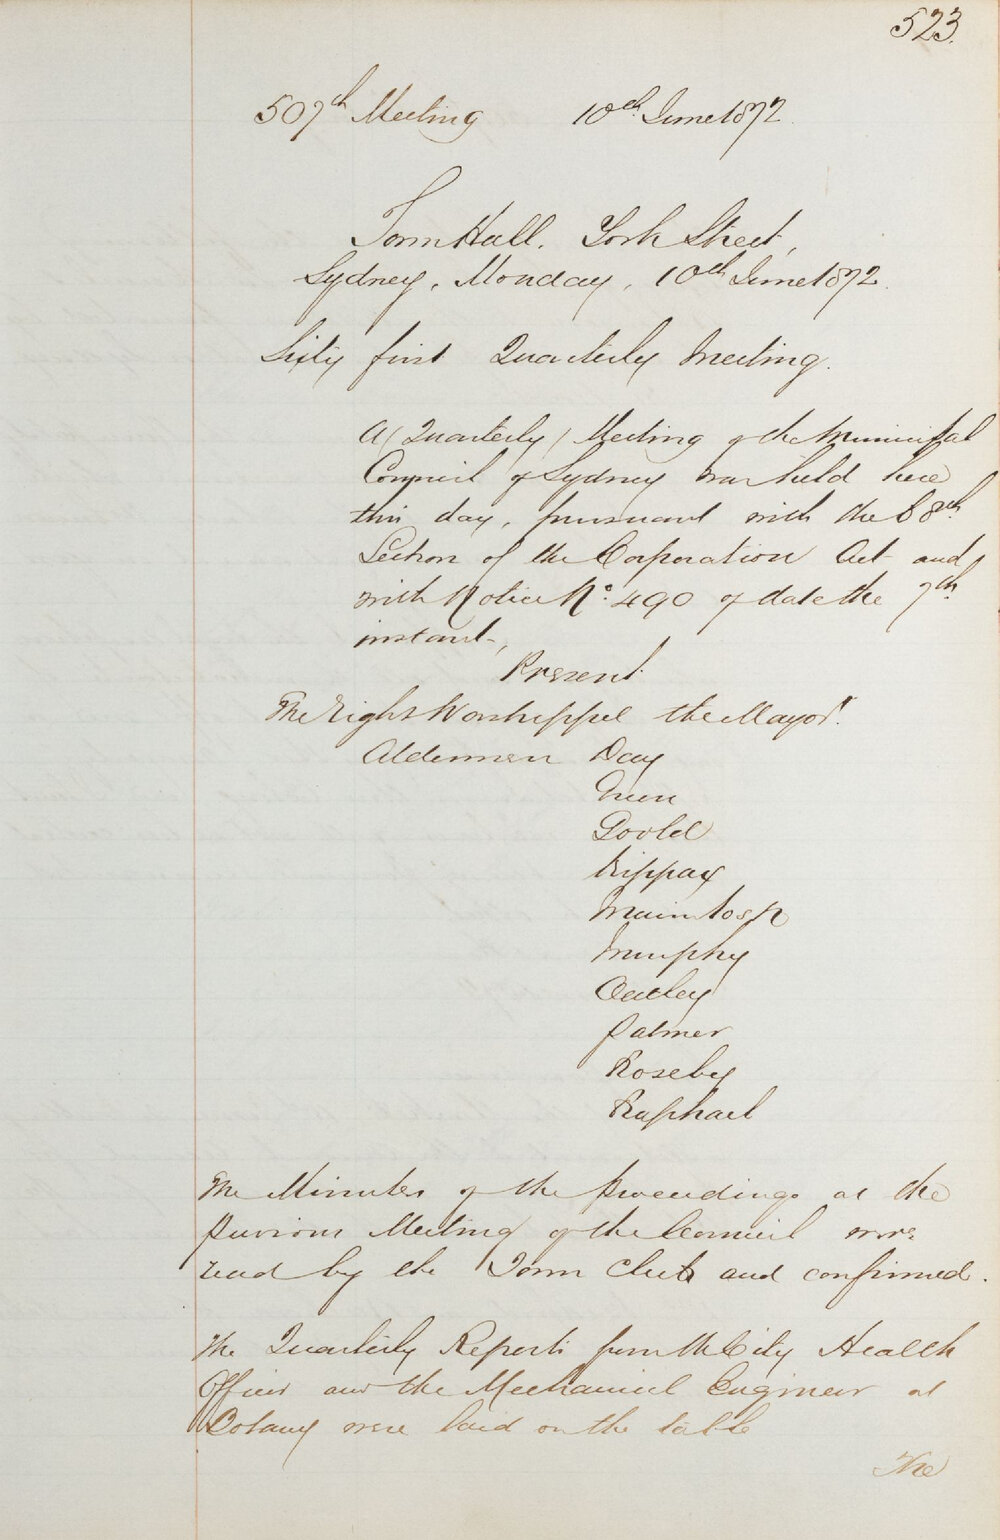 523.
507th Meeting 10th June 1872.
Town Hall. York Street,
Sydney, Monday, 10th June 1872.
Sixty first Quarterly Meeting.
A (Quarterly) Meeting of the Municipal
Council of Sydney was held here
this day, pursuant with the 68th
Section of the Corporation Act and
with Notice No. 490 of date the 7th
instant,
Present
The Right Worshipful the Mayor.
Aldermen Day
Green
Goold
Kippax
Macintosh
Murphy
Oatley
Palmer
Roseby
Raphael
The Minutes of the Proceedings at the
previous Meeting of the Council were
read by the Town Clerk and confirmed.
The Quarterly Reports from the City Health
Officer and the Mechanical Engineer at
Botany were laid on the table
The